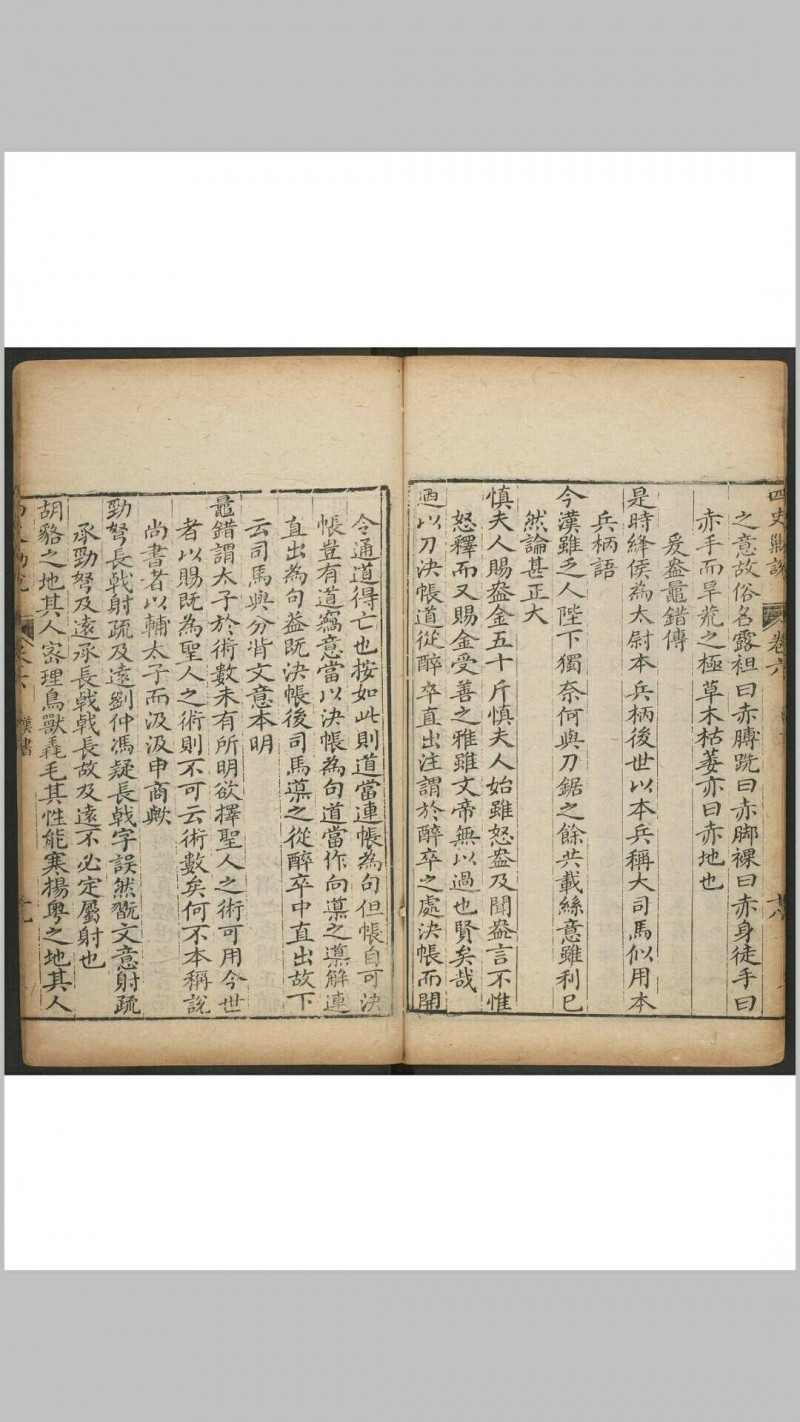 四史勦說 卷六
之意故俗名露袒曰赤膊跣曰赤脚裸曰赤身徒手曰
赤手而旱荒之極草木枯萎亦曰赤地也
爰盎鼂錯傳
是時絳侯為太尉本兵柄後世以本兵稱大司馬似用本
兵柄語
今漢雖乏人陛下獨奈何與刀鋸之餘共載絲意雖利巳
然論甚正大
慎夫人賜盎金五十斤慎夫人始雖怒盎及聞盎言不惟
怒釋而又賜金受善之雅雖文帝無以過也賢矣哉
迺以刀決帳道從醉卒直出注謂於醉卒之處決帳而開
令通道得亡也按如此則道當連帳為句但帳自可決
帳豈有道寫意當以決帳為句道當作向導之導解連
直出為句益既決帳後司馬導之從醉卒中直出故下
云司馬與分背文意本明
鼂錯謂太子於術數未有所明欲擇聖人之術可用今世
者以賜既為聖人之術則不可云術數矣何不本稱說
尚書者以輔太子而汲汲申商歟
勁弩長戟射疏及遠劉仲馮疑長戟字誤然翫文意射疏
承勁弩及遠承長戟戟長故及遠不必定屬射也
胡貉之地其人密理鳥獸毳毛其性能寒楊粵之地其人
漢書